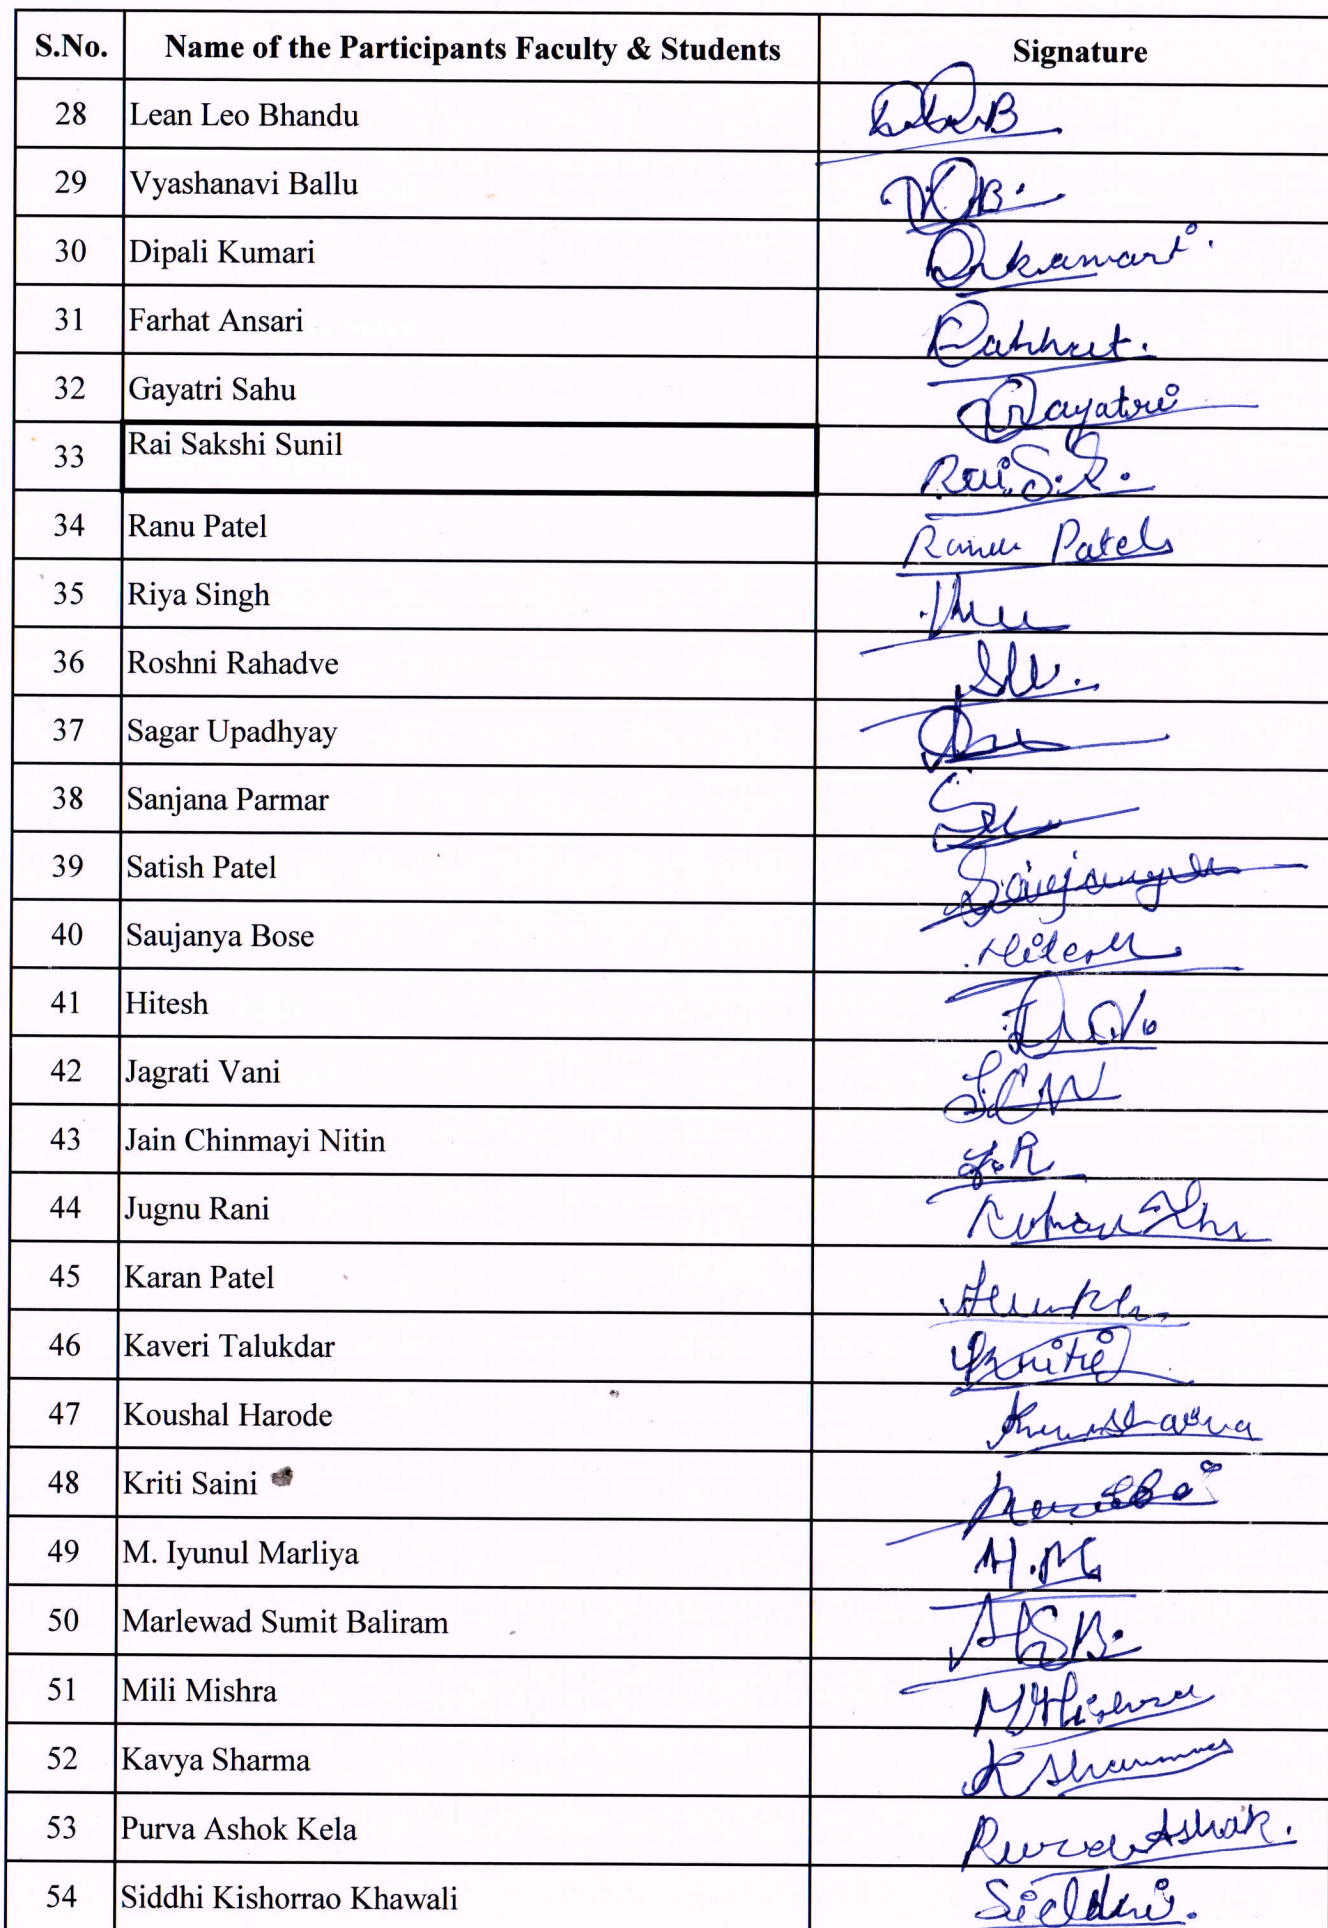 S.No. Name of the Participants Faculty & Students Signature
28 Lean Leo Bhandu
29 Vyashanavi Ballu
30 Dipali Kumari Dr kumari.
31 Farhat Ansari
32 Gayatri Sahu Gayatri
33 Rai Sakshi Sunil Rai S.S.
34 Ranu Patel Ranu Patel
35 Riya Singh
36 Roshni Rahadve
37 Sagar Upadhyay
38 Sanjana Parmar
39 Satish Patel
40 Saujanya Bose Hitesh
41 Hitesh
42 Jagrati Vani J.C.N
43 Jain Chinmayi Nitin J.R
44 Jugnu Rani
45 Karan Patel
46 Kaveri Talukdar Kriti
47 Koushal Harode
48 Kriti Saini
49 M. Iyunul Marliya M.M
50 Marlewad Sumit Baliram MSB.
51 Mili Mishra M Mishra
52 Kavya Sharma K Sharma
53 Purva Ashok Kela Purva Ashok.
54 Siddhi Kishorrao Khawali Siddhi.